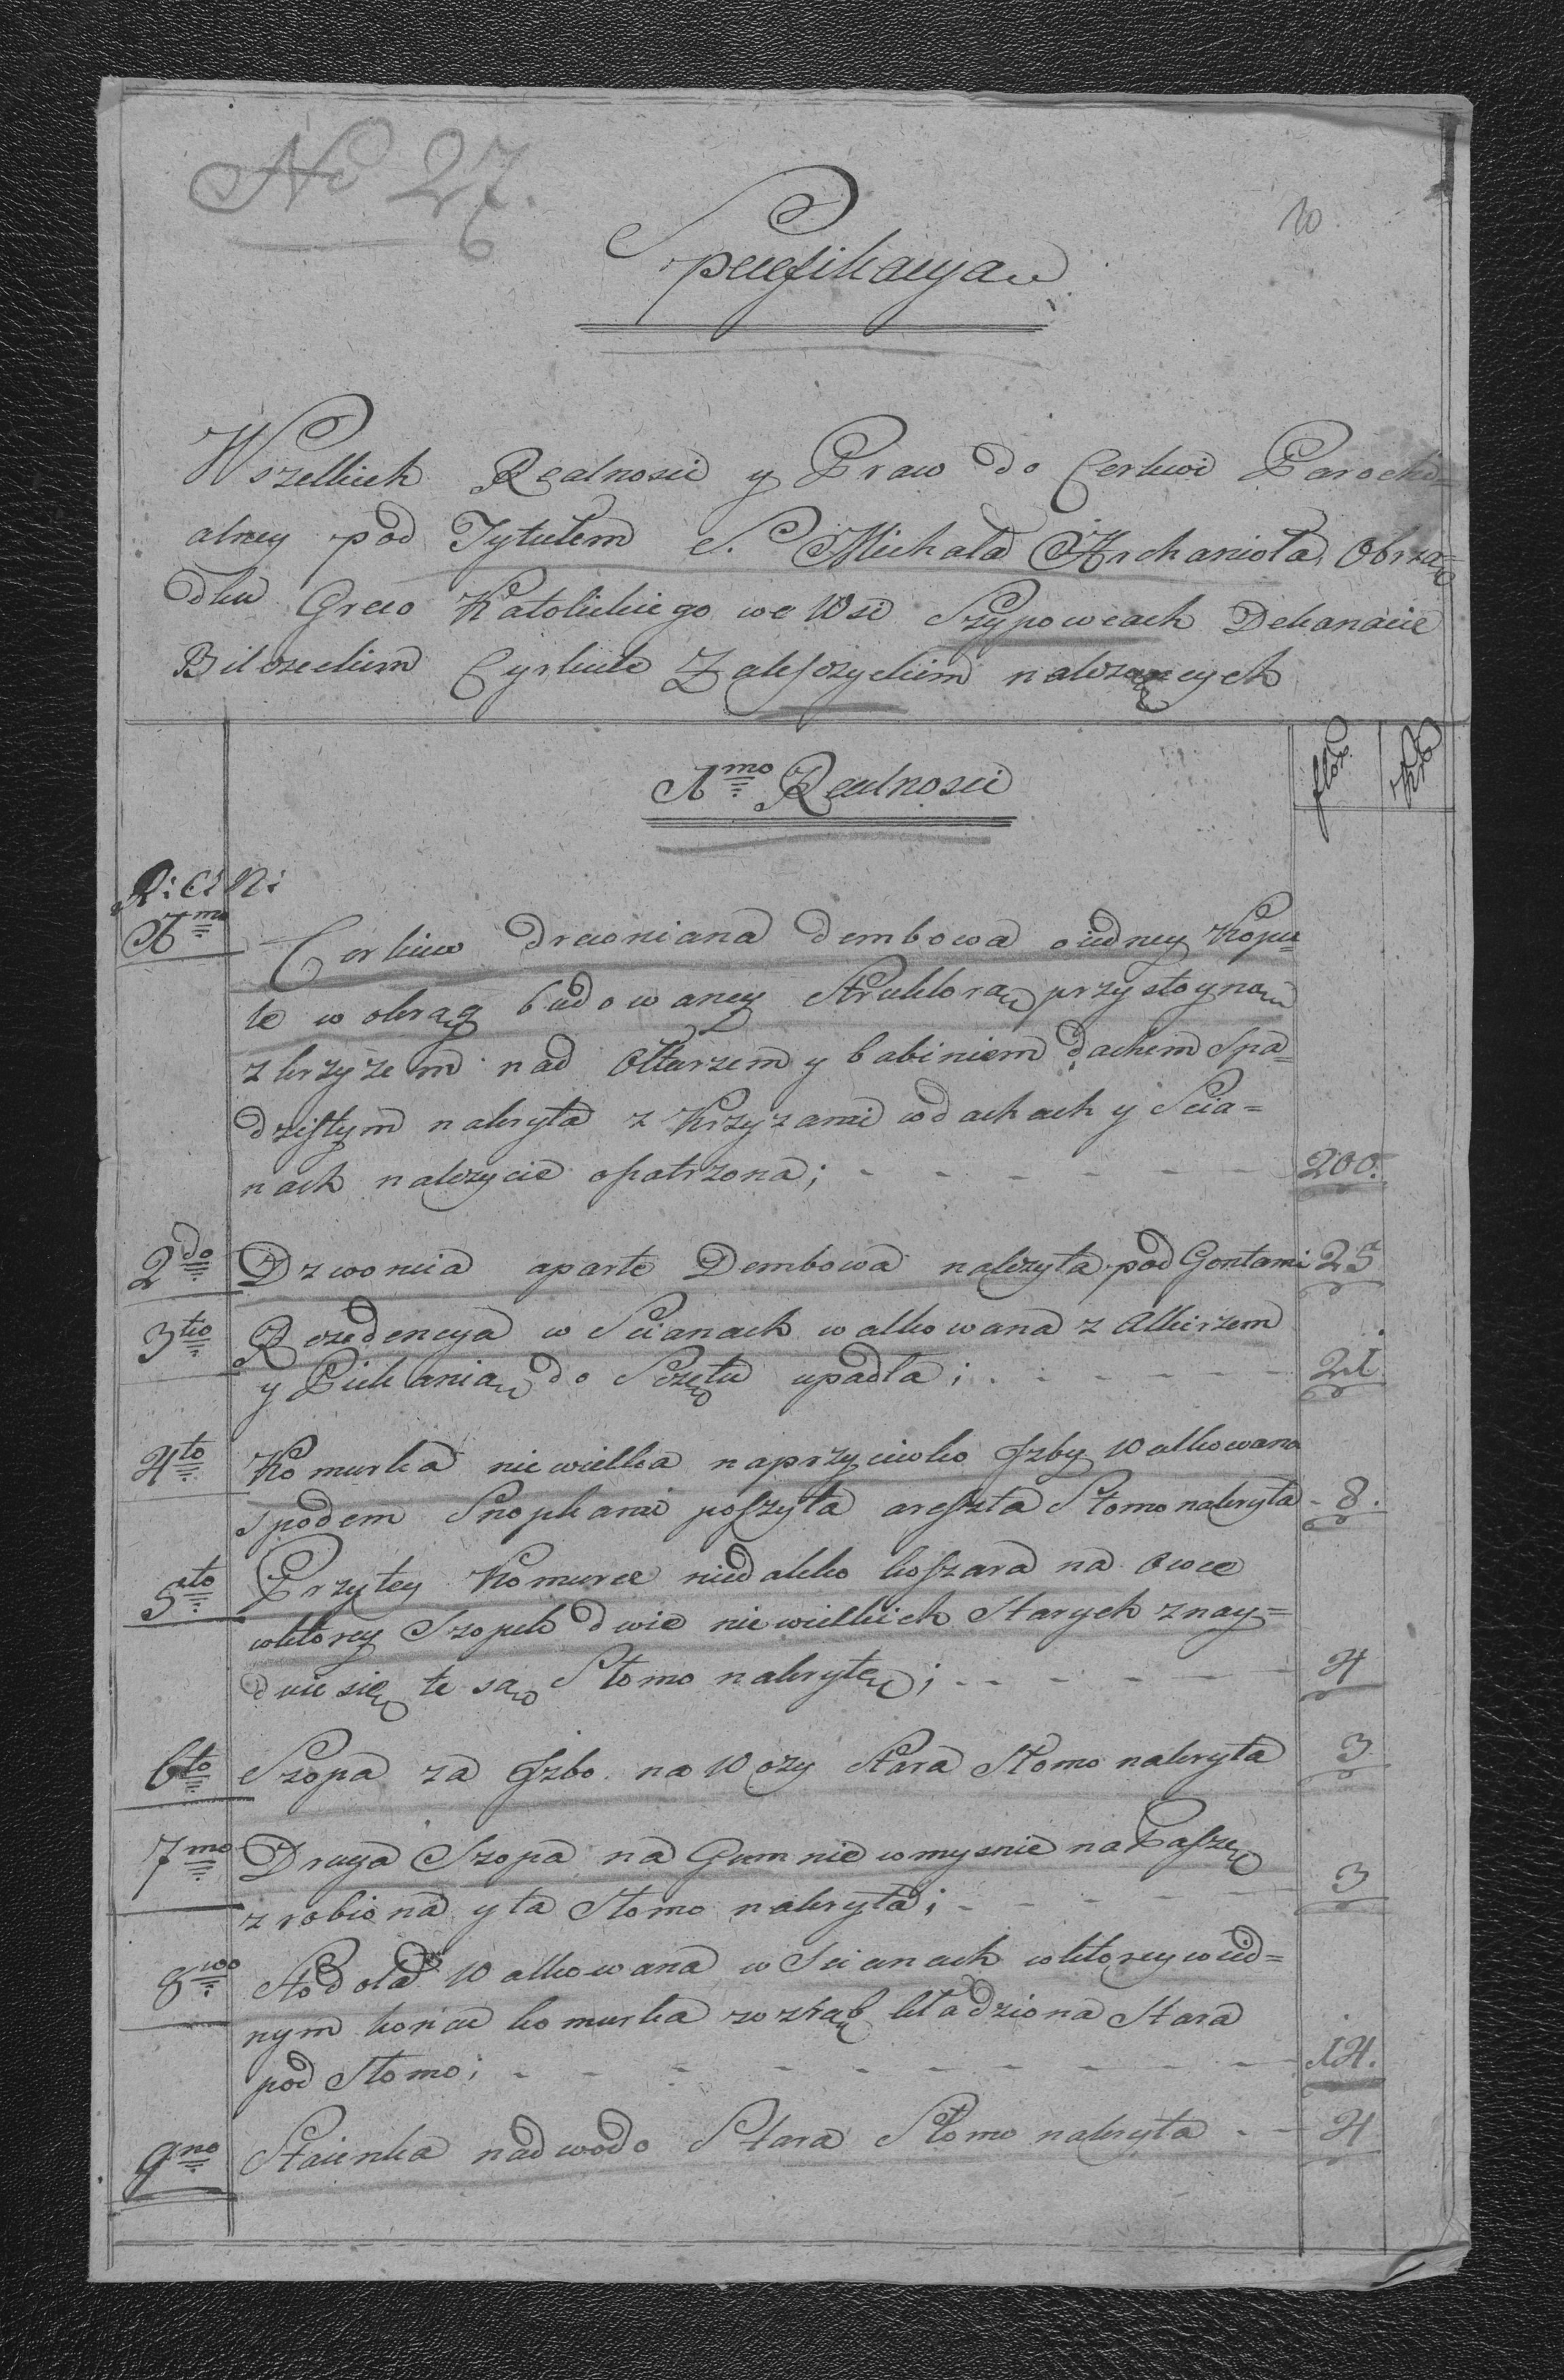 No 27.
10
Specifikacya
Wszelkich Realnosci y Praw do Cerkwi Parochi=
alney pod Tytułem S. Michała Archanioła Obrzą=
dku Greco Katolickiego we Wsi Szypowcach Dekanacie
Bilczeckim Cyrkule Zalesczyckim należących
1mo Realnosci
flor. Xro
1mo Cerkiew drewniana dembowa o iedney Kopu=
le w okrąg budowaney Strukturą przystoyną
z krzyżem nad Ołtarzem y babincem dachem Spa=
dzistym nakryta z Krzyżami w dachach y Scia=
nach należycie opatrzona; - - - - - - 200.
2do Dzwonica aparte Dembowa należyta pod Gontami 25
3tio Rezedencya w Scianach walkowana z Alkirzem
y Piekarnią do Szczętu upadła; - - - - - 21
4to Komurka niewielka naprzyciwko Izby Walkowana
spodem Snopkami poszyta areszta Słomo nakryta - 8.
5to Przytey Komurce niedaleko koszara na owce
wktorey Szopek dwie niewielkich Starych znay=
duie się te są Słomo nakryte; - - - - - 4
6to Szopa za Izbo na Wozy Stara Słomo nakryta 3
7mo Druga Szopa na Gumnie womysnie na Paszę
zrobiona y ta Słomo nakryta; - - - - 3
8vo Stodoła Walkowana w Scianach wktorey wied=
nym koncu komurka wzrąb kładziona Stara
pod Słomo; - - - - - - - - - 14.
9no Staienka nad wodo Stara Słomo nakryta - - 4